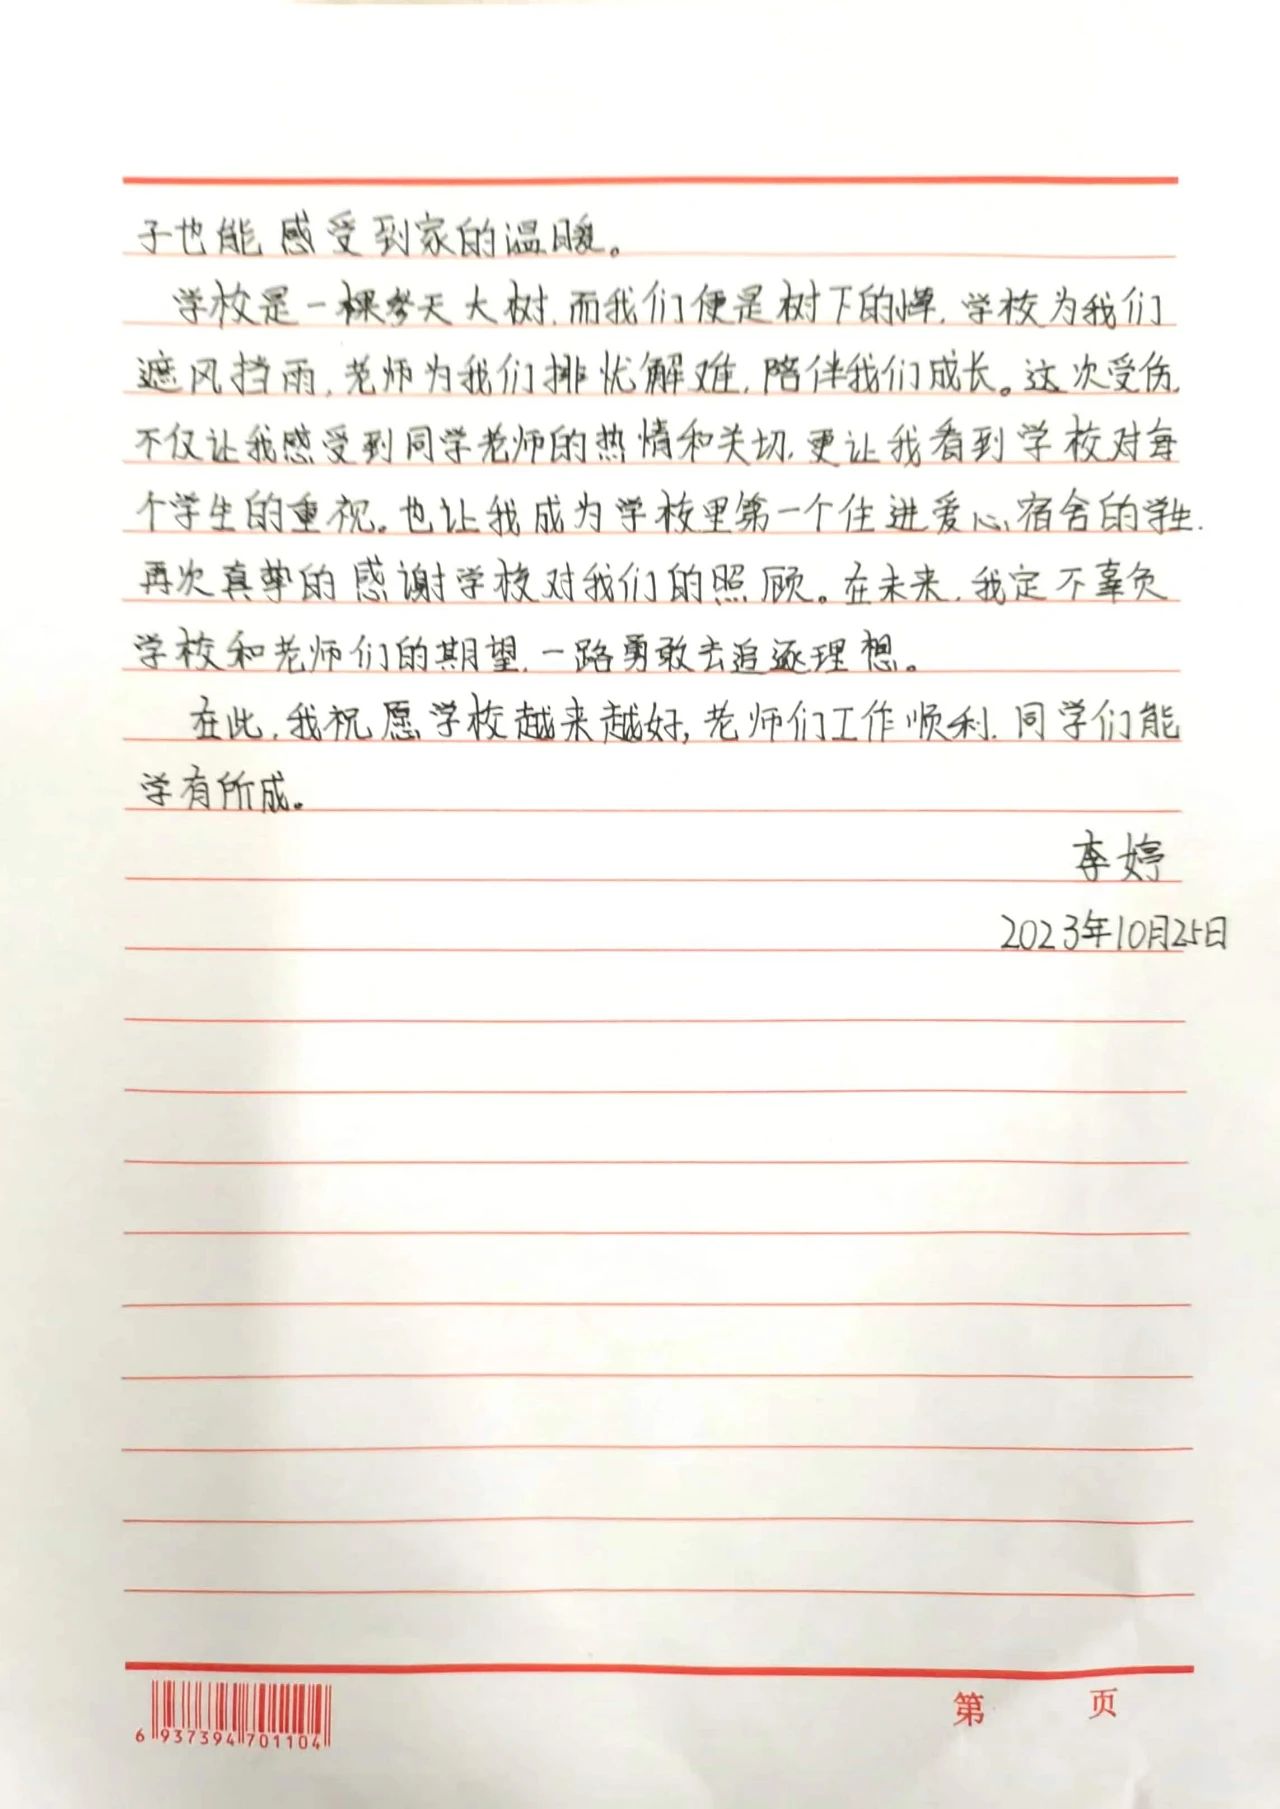 子也能感受到家的温暖。
学校是一棵参天大树,而我们便是树下的蝉,学校为我们
遮风挡雨,老师为我们排忧解难,陪伴我们成长。这次受伤,
不仅让我感受到同学老师的热情和关切,更让我看到学校对每
个学生的重视。也让我成为学校里第一个住进爱心宿舍的学生.
再次真挚的感谢学校对我们的照顾。在未来,我定不辜负
学校和老师们的期望,一路勇敢去追逐理想。
在此,我祝愿学校越来越好,老师们工作顺利,同学们能
学有所成。
李婷
2023年10月25日
6 937394 701104
第 页